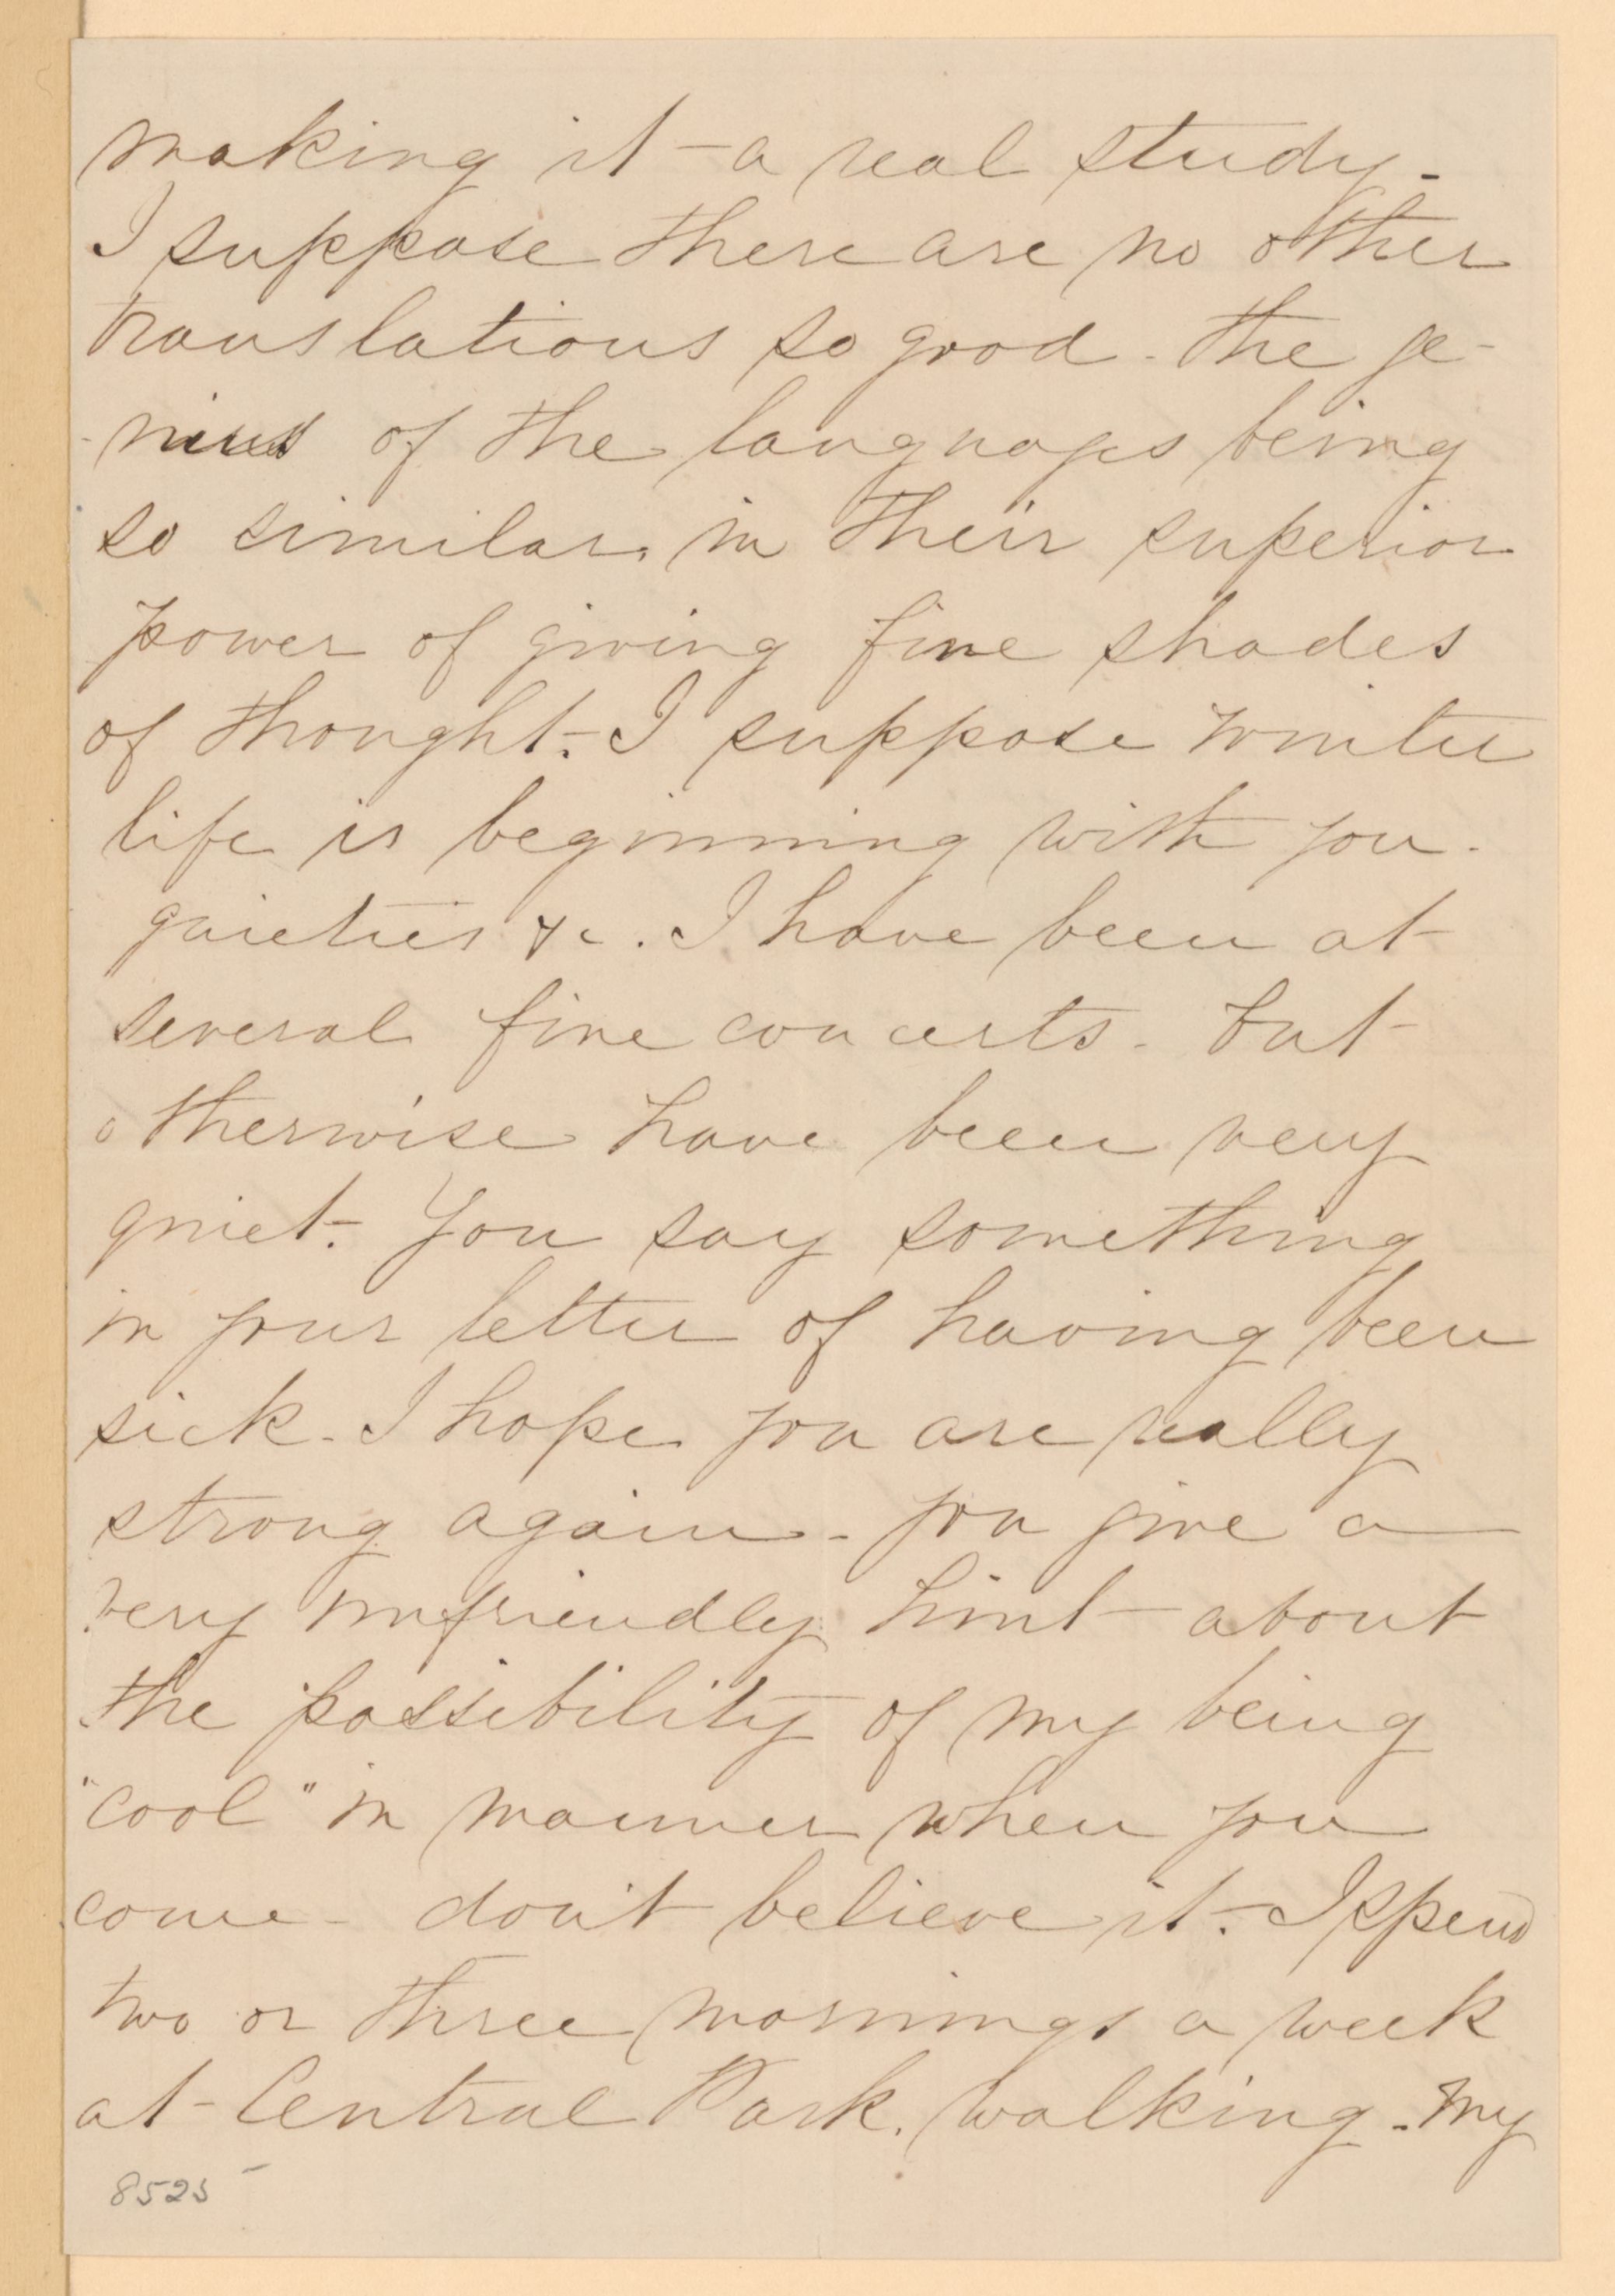 making it - a real study -
I suppose there are no other
translations so good - the ge-
-nius of the languages being
so similar, in their superior
power of giving fine shades
of thought - I suppose winter
life is beginning with you -
gaieties &c. I have been at
several fine concerts - but
otherwise have been very
quiet - You say something
in your letter of having been
sick - I hope you are really
strong again - you give a
very unfriendly hint about
the possibility of my being
"cool" in manner when you
come - don't believe it - I spend
two or three mornings a week
at Central Park, walking - my
8525